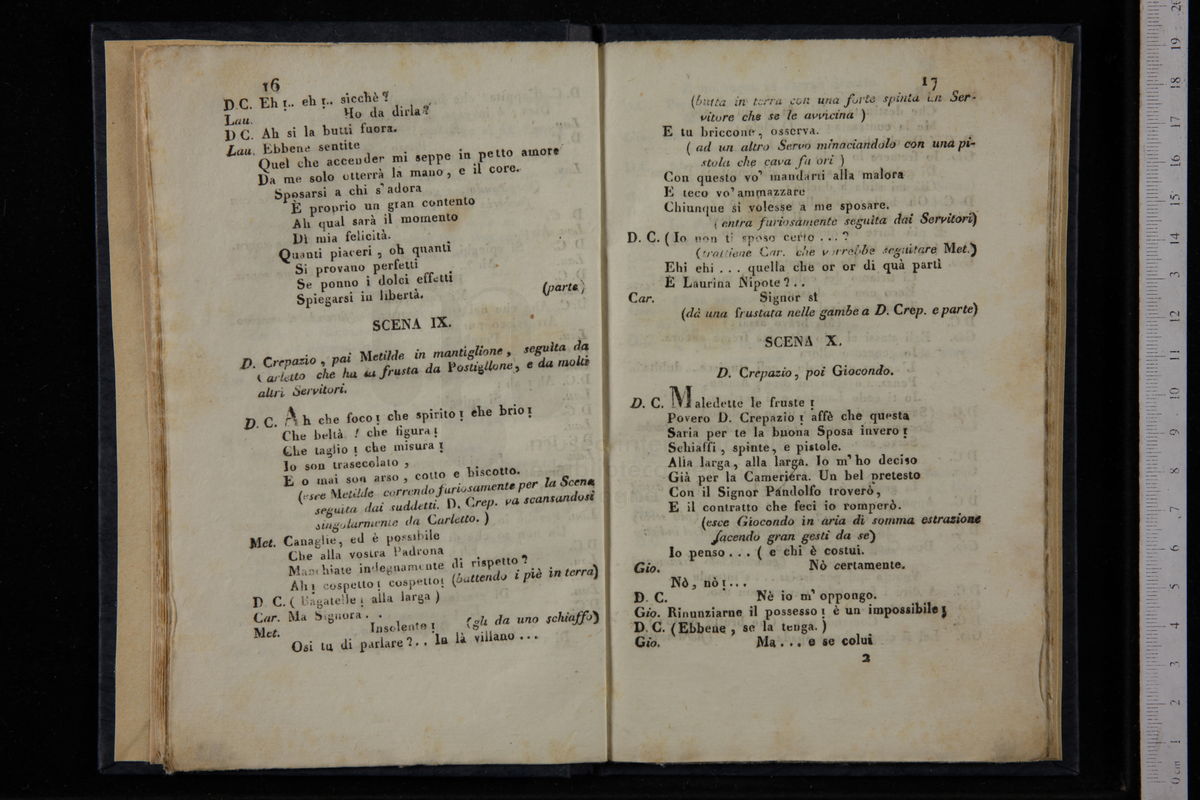 16
D.C. Eh!.. eh!.. sicchè?
Lau. Ho da dirla?
D C. Ah si la butti fuora.
Lau. Ebbene sentite
Quel che accender mi seppe in petto amore
Da me solo otterrà la mano, e il core.
Sposarsi a chi s'adora
È proprio un gran contento
Ah qual sarà il momento
Di mia felicità.
Quanti piaceri, oh quanti
Si provano perfetti
Se ponno i dolci effetti
Spiegarsi in libertà. (parte)
SCENA IX.
D. Crepazio, pai Metilde in mantiglione, seguita da
Carletto che ha la frusta da Postiglione, e da molti
altri Servitori.
D. C. Ah che foco! che spirito! che brio!
Che beltà! che figura!
Che taglio! che misura!
Io son trasecolato,
E o mai son arso, cotto e biscotto.
(esce Metilde correndo furiosamente per la Scena
seguita dai suddetti. D. Crep. va scansandosi
singolarmente da Carletto.)
Met. Canaglie, ed è possibile
Che alla vostra Padrona
Manchiate indegnamente di rispetto?
Ah! cospetto! cospetto! (battendo i piè in terra)
D C. (Bagatelle! alla larga)
Car. Ma Signora..
Met. Insolente! (gli da uno schiaffo)
Osi tu di parlare?.. In là villano...
17
(butta in terra con una forte spinta un Ser-
vitore che se le avvicina)
E tu briccone, osserva.
(ad un altro Servo minaciandolo con una pi-
stola che cava fu ori)
Con questo vo' mandarti alla malora
E teco vo' ammazzare
Chiunque si volesse a me sposare.
(entra furiosamente seguita dai Servitori)
D. C. (Io non ti sposo certo...?
(trattiene Car. che vorrebbe seguitare Met.)
Ehi ehi... quella che or or di quà partì
È Laurina Nipote?..
Car. Signor sì
(dà una frustata nelle gambe a D. Crep. e parte)
SCENA X.
D. Crepazio, poi Giocondo.
D. C. Maledette le fruste!
Povero D. Crepazio! affè che questa
Saria per te la buona Sposa invero!
Schiaffi, spinte, e pistole.
Alla larga, alla larga. Io m' ho deciso
Già per la Cameriera. Un bel pretesto
Con il Signor Pandolfo troverò,
E il contratto che feci io romperò.
(esce Giocondo in aria di somma estrazione
facendo gran gesti da se)
Io penso... (e chi è costui.
Gio. Nò certamente.
Nò, nò!...
D. C. Nè io m' oppongo.
Gio. Rinunziarne il possesso! è un impossibile;
D. C. (Ebbene, se la tenga.)
Gio. Ma... e se colui
2
0 cm 1 2 3 4 5 6 7 8 9 10 11 12 13 14 15 16 17 18 19 20